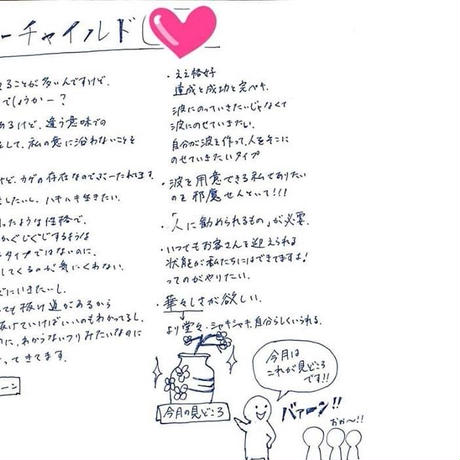 ーチャイルド
ることが多いんですけど、
でしょうかー？
あるけど、違う意味での
して、私の意に沿わないことを
けど、カゲの存在なのでざーたれてます。
したいし、ハキハキ生きたい。
ったような性格で、
かぐじぐじするような
タイプではないのに、
してくるのが気にくわない。
にいきたいし、
ても抜け道があるから
抜けていけばいいのもわかってるし、
に、わからないフリみたいなのに
ってきてます。
ーン
・ええ格好
達成と成功と完ペキ。
波にのっていきたいじゃなくて
波にのせていきたい。
自分が波を作って、人をそこに
のせていきたいタイプ
・波を用意できる私でありたい
のを邪魔せんといて!!!
・「人に勧められるもの」が必要。
・いつでもお客さんを迎えられる
状態が私たちにはできてますよ!
ってのがやりたい。
・華々しさが欲しい。
より堂々・シャキシャキ、自分らしくいられる。
今月の見どころ
今月は
これが見どころ
です!!
バァーン!!
おぉ〜!!